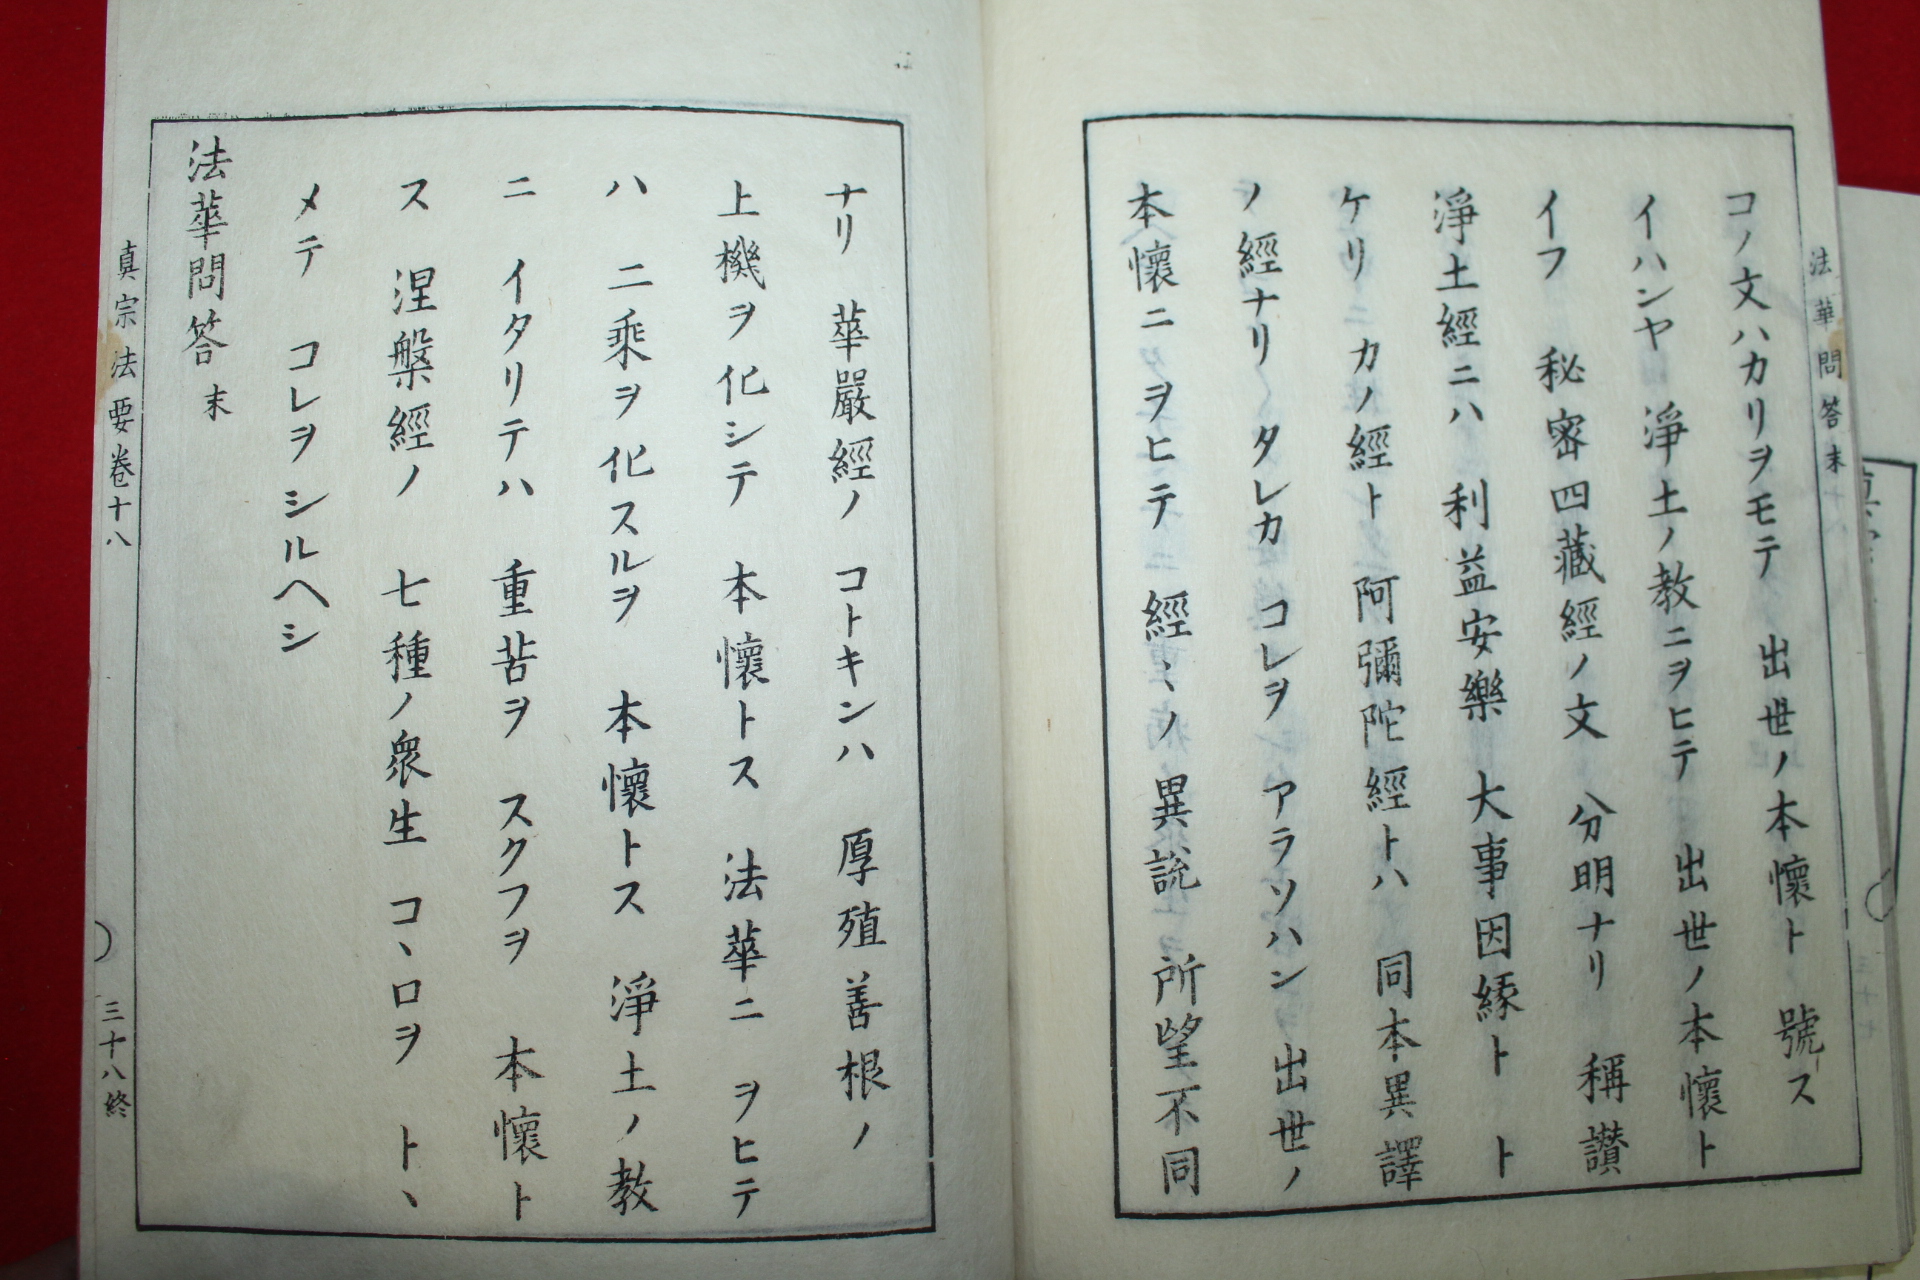 法華問答末
コノ文ハカリヲモテ 出世ノ本懷ト 號ス
イハンヤ 淨土ノ教ニヲヒテ 出世ノ本懷ト
イフ 秘密四藏經ノ文 分明ナリ 稱讃
淨土經ニハ 利益安樂 大事因縁ト ト
ケリ カノ經ト 阿彌陀經トハ 同本異譯
ノ經ナリ タレカ コレヲ アラソハン 出世ノ
本懷ニヲヒテ 經〻ノ 異説 所望不同
ナリ 華嚴經ノ コトキンハ 厚殖善根ノ
上機ヲ化シテ 本懷トス 法華ニ ヲヒテ
ハ 二乘ヲ化スルヲ 本懷トス 淨土ノ教
ニ イタリテハ 重苦ヲ スクフヲ 本懷ト
ス 涅槃經ノ 七種ノ衆生 コヽロヲ トヽ
メテ コレヲ シルヘシ
法華問答 末
真宗法要卷十八
三十八終